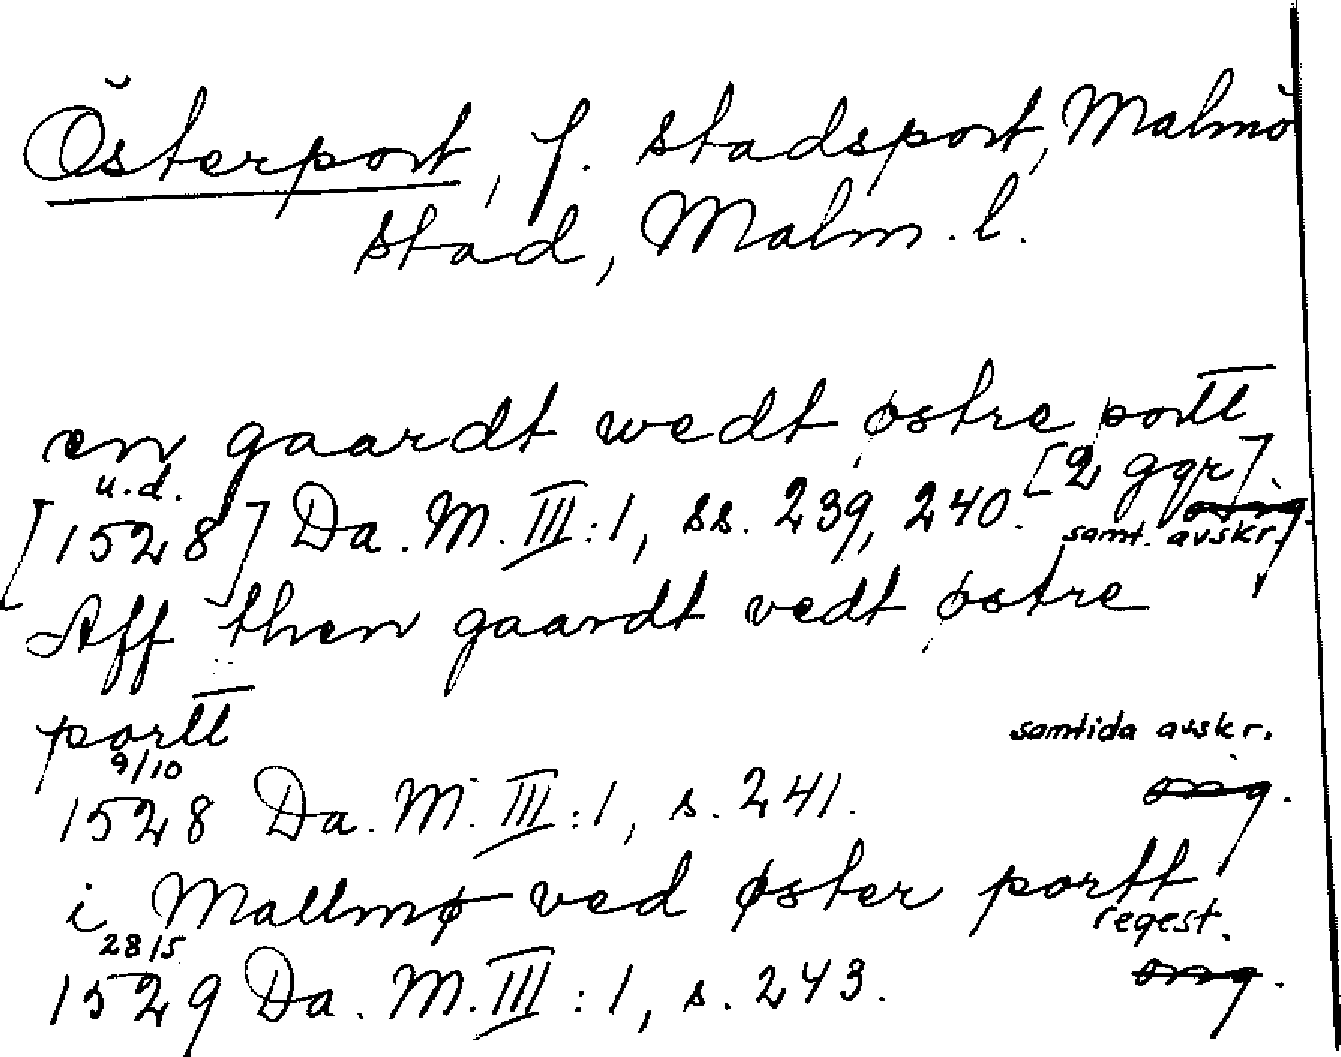 Österport, f. stadsport, Malmö
stad, Malm. l.
en gaardt wedt østre portt
u.d. [2 ggr].
[1528] Da. M. III:1, ss. 239, 240. orig.
samt. avskr.
Aff then gaardt vedt østre
portt samtida avskr.
9/10
1528 Da. M. III:1, s. 241. orig.
i Mallmø ved øster portt
28/5 regest.
1529 Da. M. III:1, s. 243. orig.